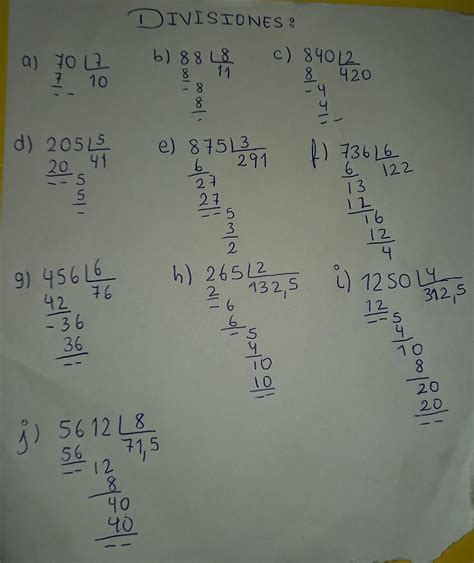 DIVISIONES:
a) 70 7
7 10
--
b) 88 8
8 11
-8
8
-
c) 840 2
8 420
-4
4
--
d) 205 5
20 41
--5
5
-
e) 875 3
6 291
27
27
--5
3
2
f) 736 6
6 122
13
12
16
12
4
g) 456 6
42 76
-36
36
--
h) 265 2
2 132,5
-6
6
-5
4
10
10
--
i) 1250 4
12 312,5
--5
4
10
8
20
20
--
j) 5612 8
56 71,5
--12
8
40
40
--